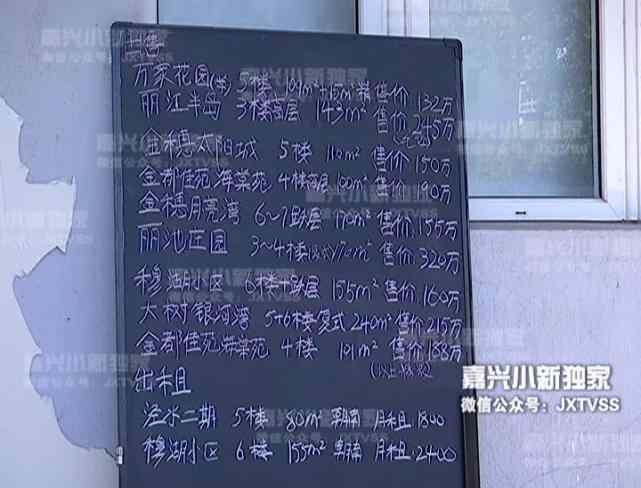 出售
万家花园(学) 5楼 109m²+15m² 精 售价 132万
丽江半岛 3楼高层 143m² 售价 245万
金穗太阳城 5楼 110m² 售价 150万
金都佳苑海棠苑 4楼高层 190m² 售价 190万
金穗月亮湾 6~7跃层 170m² 售价 155万
丽池庄园 3~4楼 170m² 售价 320万
穆湖小区 6楼+跃层 155m² 售价 160万
大树银河湾 5+6楼复式 240m² 售价 215万
金都佳苑海棠苑 4楼 191m² 售价 188万
出租
泾水二期 5楼 80m² 朝南 月租 1800
穆湖小区 6楼 155m² 朝南 月租 2400
嘉兴小新独家
微信公众号：JXTVSS